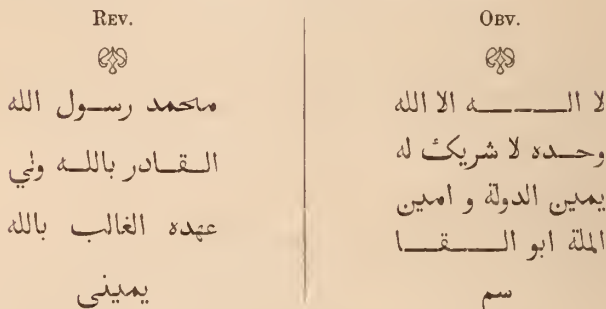 Rev.
محمد رسول الله
القادر بالله ولي
عهده الغالب بالله
يميني
Obv.
لا اله الا الله
وحده لا شريك له
يمين الدولة و امين
الملة ابو القا
سم